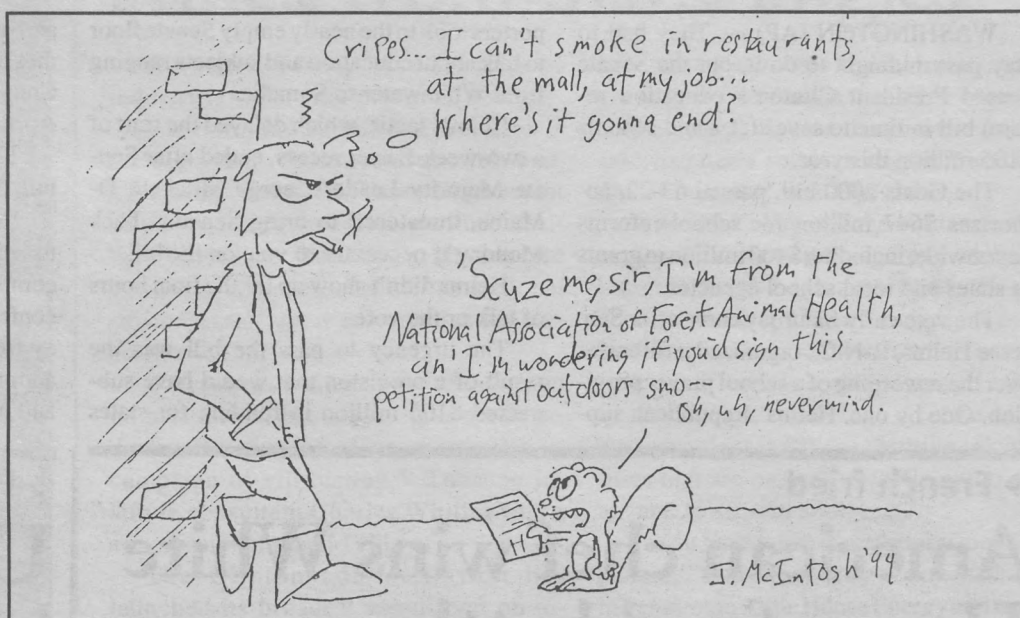 Cripes. I can't smoke in restaurants,
at the mall, at my job...
Where's it gonna end?
'Scuze me, sir I'm from the
National Association of Forest Animal Health,
an' I'm wondering if you'd sign this
petition against outdoors smo-
Oh, uh, nevermind.
J. McIntosh '94